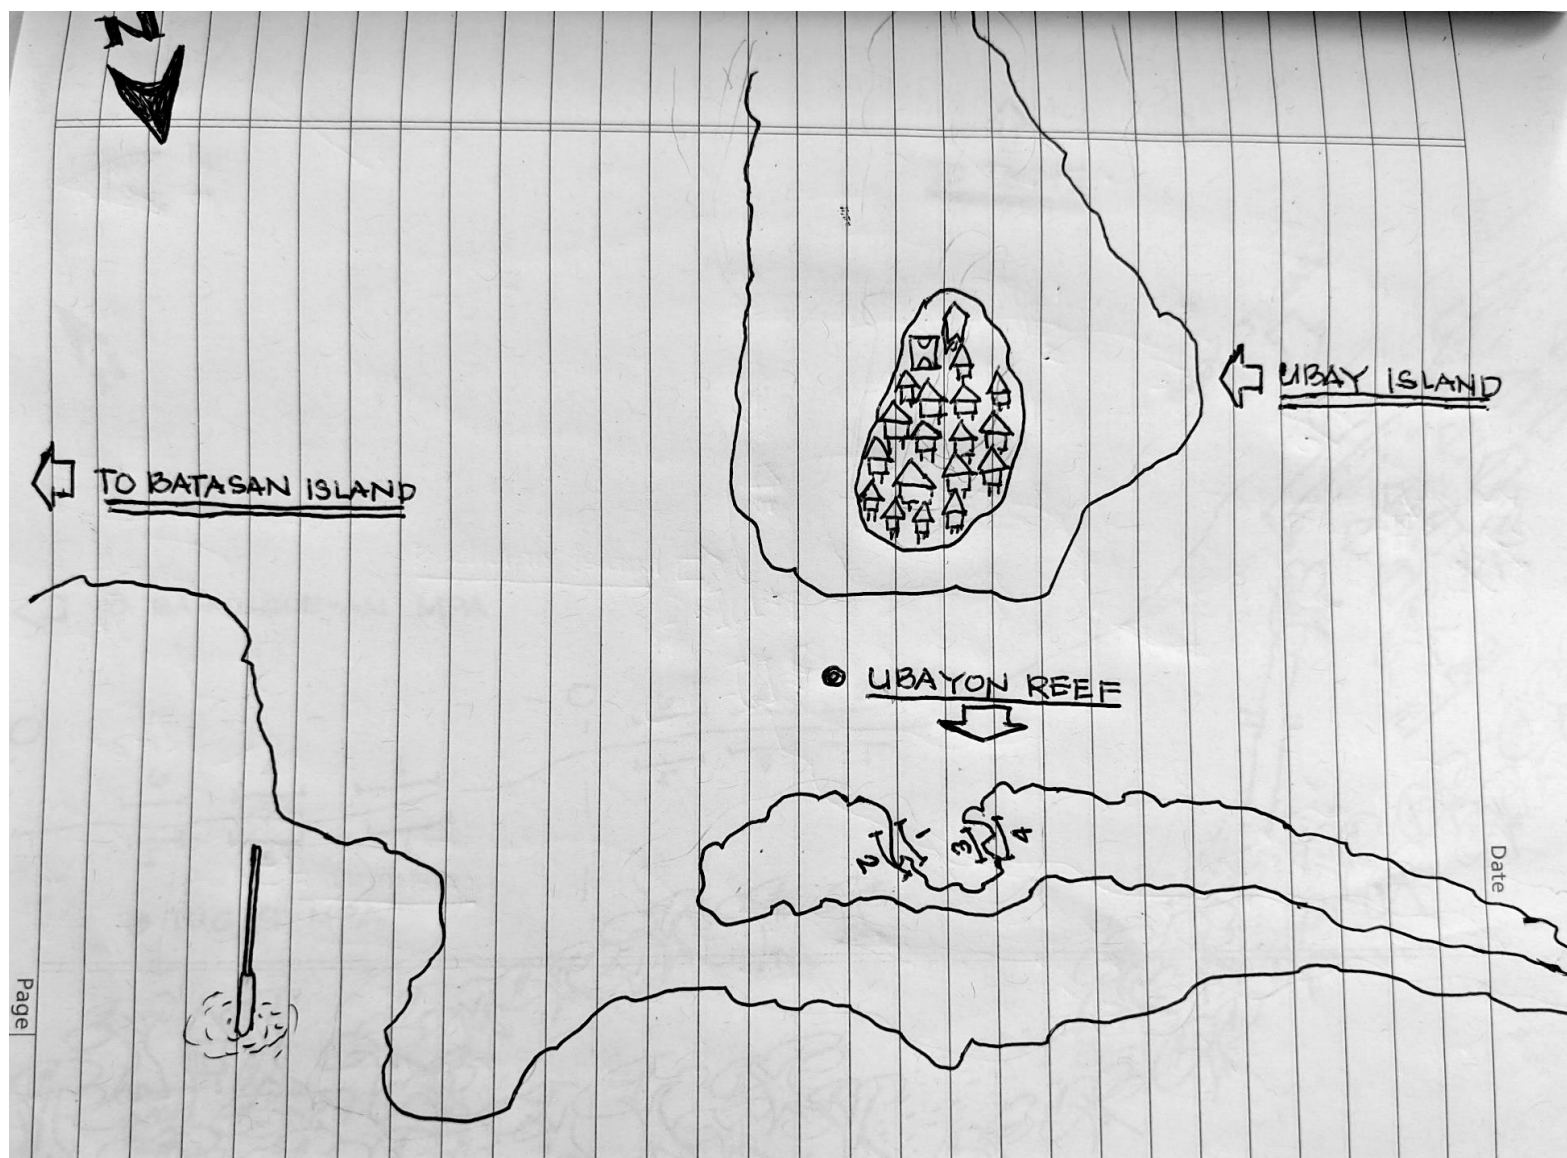 N
UBAY ISLAND
TO BATASAN ISLAND
UBAYON REEF
1
2
3
4
Date
Page